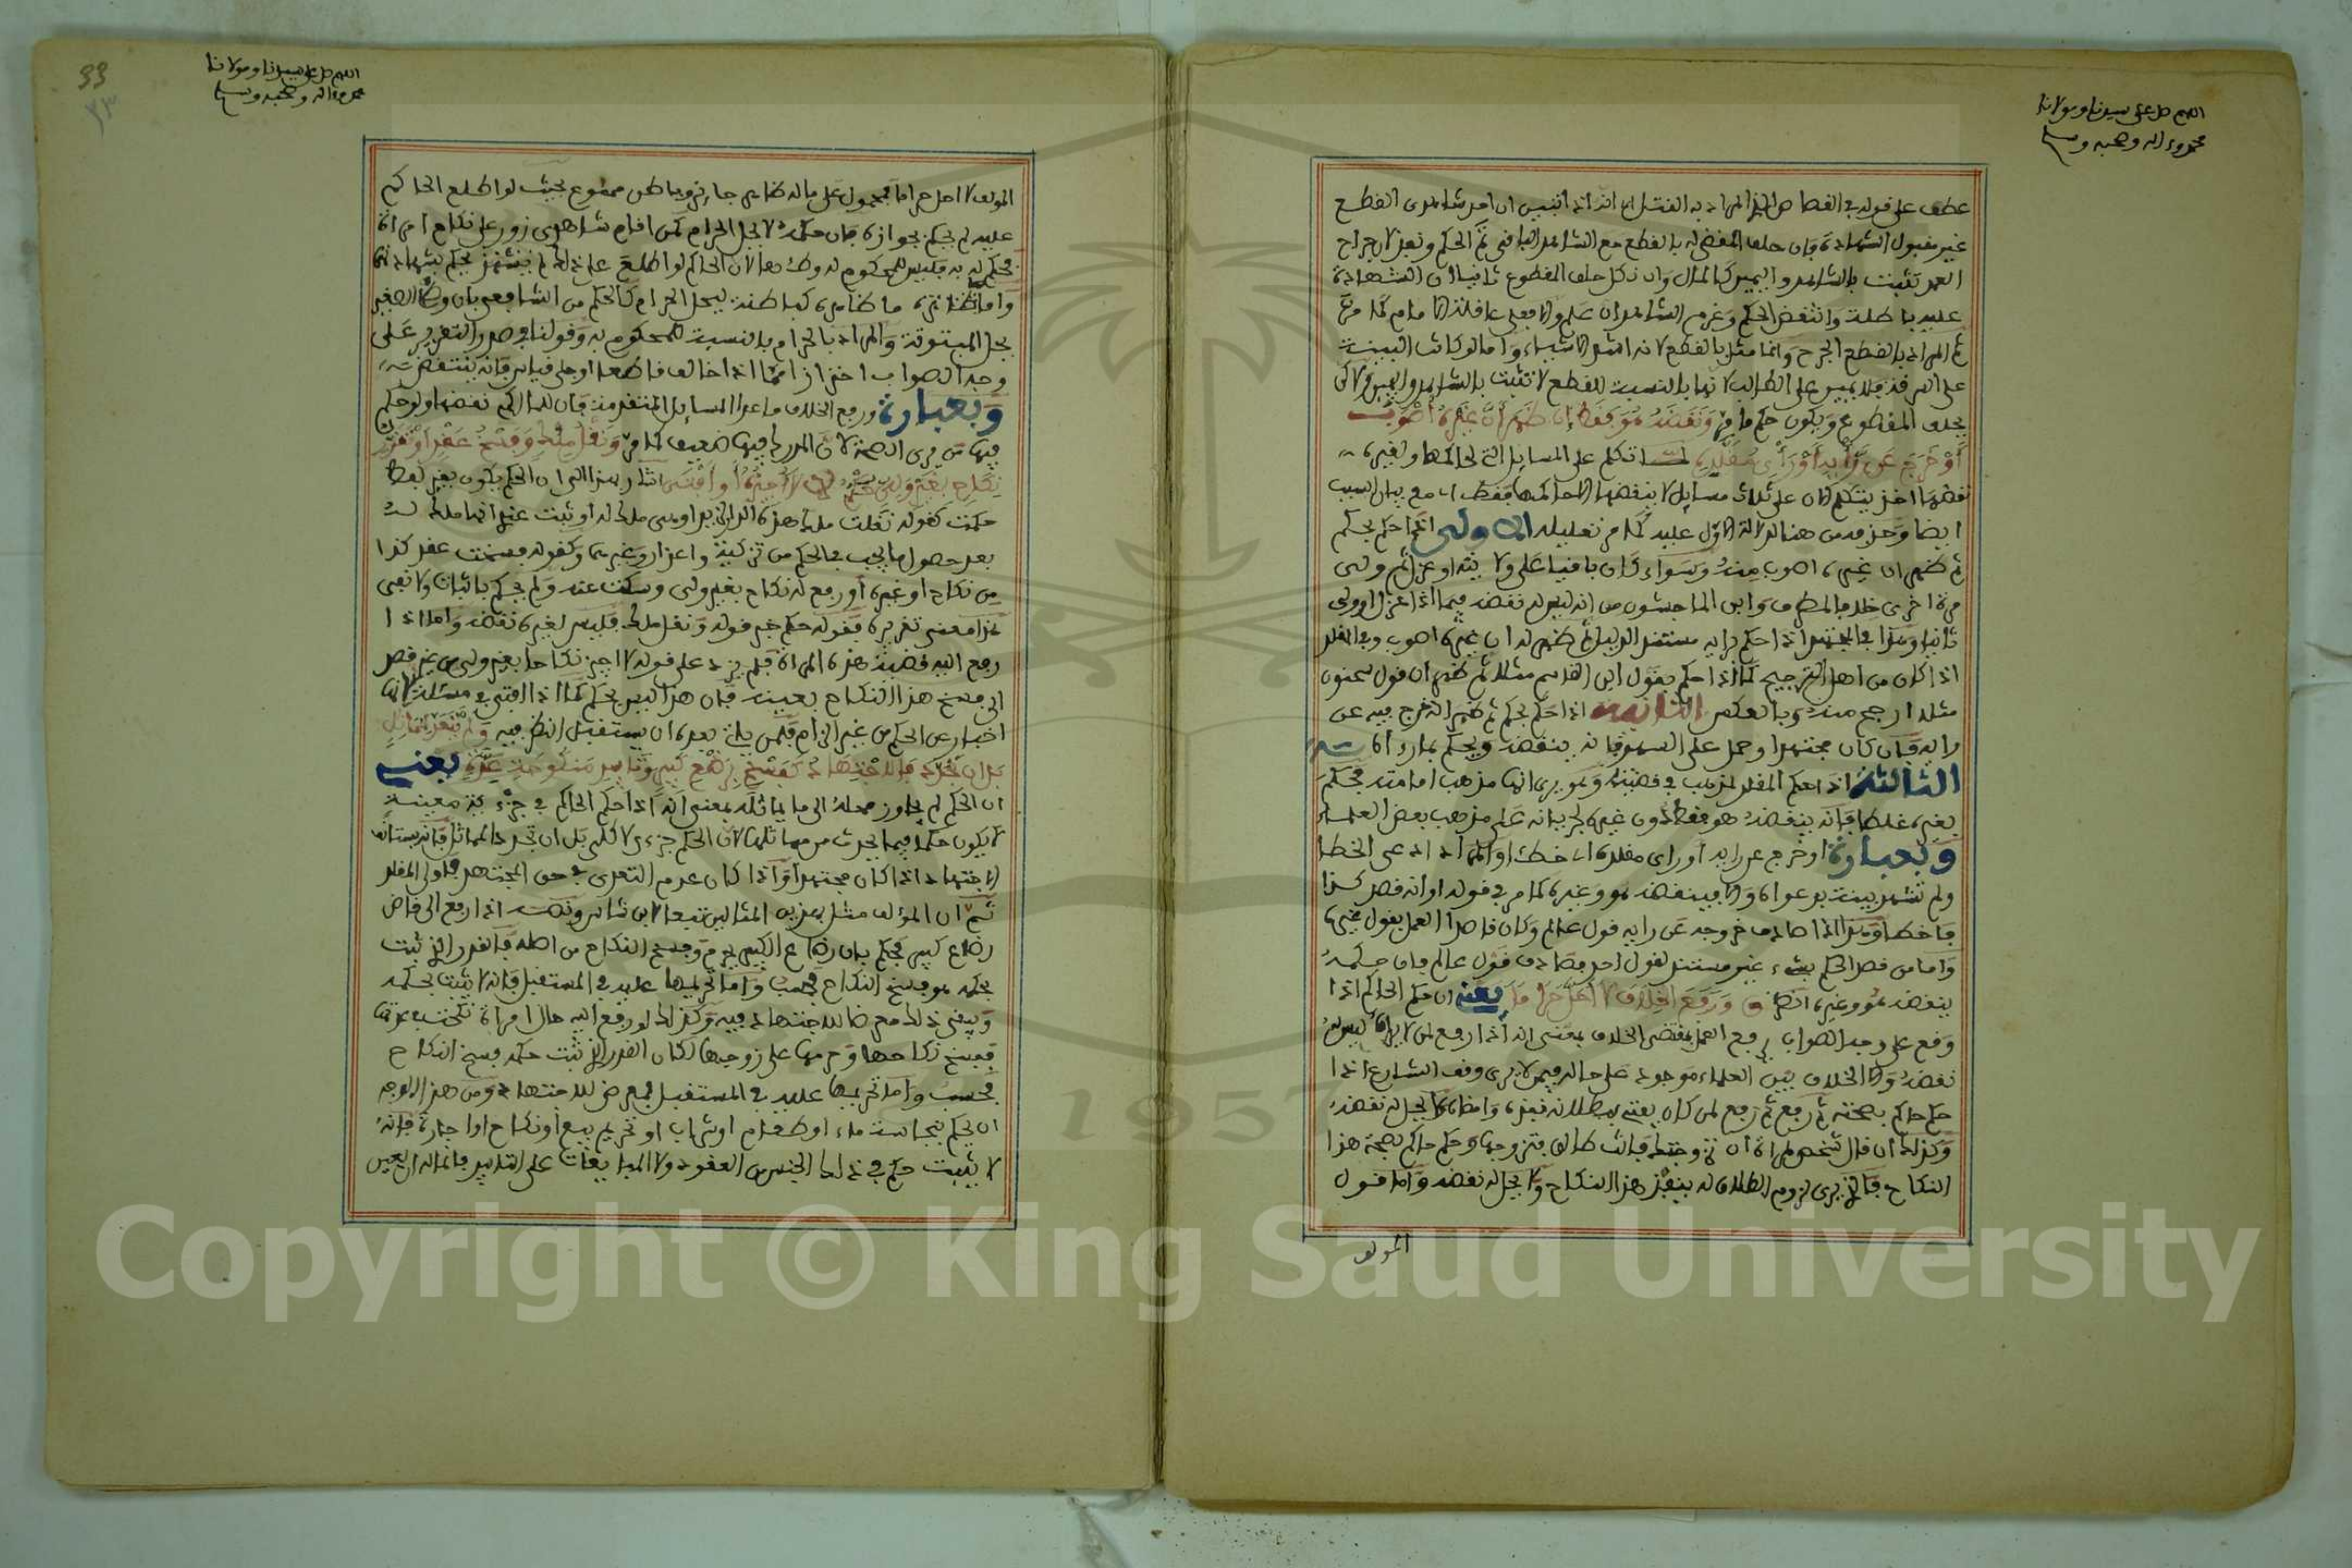 اللهم صل على سيدنا ومولانا
محمد وءاله وصحبه وسلم
عطف على قوله في القصاص المراد به القتل اي انه اذا تبين ان احد شاهدي القطع
غير مقبول الشهادة فان حلف المقضي له بالقطع مع الشاهد الباقي تم الحكم ونفذ لان جراح
العمد تثبت بالشاهد واليمين كالمال وان نكل حلف المقطوع ثانيا ان الشهادة
عليه باطلة وانتقض الحكم وغرم الشاهد ان علم والا فعلى عاقلة الامام كما مر
ثم المراد بالقطع الجرح وانما مثل بالقطع لانه اشد الاشياء واما لو كانت البينة
على السرقة فلا يمين على الطالب لانها بالنسبة للقطع لا تثبت بالشاهد واليمين لاكن
يحلف المقطوع ويكون حكم ما مر ونقضه هو فقط ان ظهر أن غيره أصوب
أو خرج عن رأيه أو رأي مقلده لما تكلم على المسايل التي لحاكمها ولغيره
نقضها اخذ يتكلم الان على ثلاث مسايل لا ينقضها الا حاكمها فقط اي مع بيان السبب
ايضا وحذفه من هنا لدلالة الاول عليه كما مر تعليله الاولى اذا حكم بحكم
ثم ظهر ان غيره اصوب منه وسواء كان باقيا على ولايته او عزل ثم ولي
مرة اخرى خلافا لمطرف وابن الماجشون من انه ليس له نقضه فيما اذا عزل او ولي
ثانيا وهذا في المجتهد اذا حكم برايه مستند الدليل ثم ظهر له ان غيره اصوب وفي المقلد
اذا كان من اهل الترجيح كما اذا حكم بقول ابن القاسم مثلا ثم ظهر ان قول سحنون
مثلا ارجح منه وبالعكس الثانية اذا حكم بحكم ثم ظهر انه خرج فيه عن
رايه فان كان مجتهدا وحمل على السهو فانه ينقضه ويحكم بما رءاه
الثالثة اذا حكم المقلد لمذهب في قضية وهو يرى انها مذهب امامه فحكم
بغيره غلطا فانه ينقضه هو فقط دون غيره لجريانه على مذهب بعض العلماء
وبعبارة او خرج عن رايه او راى مقلده اي خطئا والمراد ادعى الخطا
ولم تشهد بينة بدعواه والا فينقضه هو وغيره كما مر في قوله او انه قصد كذا
فاخطا وهذا اذا صادف خروجه عن رايه قول عالم وكان قاصدا العمل بقول غيره
واما من قصد الحكم بشيء غير مستند لقول احد فصادف قول عالم فان حكمه
ينقضه هو وغيره انظر ق ورفع الخلاف لا أحل حراما يعني ان حكم الحاكم اذا
وقع على وجه الصواب يرفع العمل بمقتضى الخلاف بمعنى انه اذا رفع لمن لا يراه ليس له
نقضه والا الخلاف بين العلماء موجود على حاله فمن لا يرى وقف المشاع اذا
حكم حاكم بصحته ثم رفع لمن كان يفتي ببطلانه نفذه وامضاه ولا يحل له نقضه
وكذلك ان قال شخص لامراة ان تزوجتك فانت طالق فتزوجها وحكم حاكم بصحة هذا
النكاح فالذي يرى لزوم الطلاق له ينفذ هذا النكاح ولا يحل له نقضه واما قول
المولف
اللهم صل على سيدنا ومولانا
محمد وءاله وصحبه وسلم
33
٢٣
المولف لا احل حراما فمحمول على ما له ظاهر جايز وباطن ممنوع بحيث لو اطلع الحاكم
عليه لم يحكم بجوازه فان حكمه لا يحل الحرام كمن اقام شاهدي زور على نكاح امراة
فحكم له به فليس للمحكوم له وطئها لان الحاكم لو اطلع على ذلك لم يحكم بشهادتهما
واما ما ظاهره كباطنه ليحل الحرام كالحكم من الشافعي بان وطء الصغير
يحل المبتوتة والمراد بالحرام بالنسبة للمحكوم به وقولنا في صدر التقرير على
وجه الصواب احترازا مما اذا خالف قاطعا او جلي قياس فانه ينتقض ته
وبعبارة ورفع الخلاف ما عدا المسايل المتقدمة فان للحاكم نقضها ولو حكم
فيها من يرى الصحة لان المدرك فيها ضعيف كما مر ونقل ملك وفسخ عقد أو تقرر
نكاح بغير ولي حكم لا لا أجيزه أو أفتى اشار بهذا الى ان الحكم يكون بغير لفظ
حكمت كقوله نقلت ملك هذه الدار لزيد او هي ملك له او ثبت عندي انها ملك له
بعد حصول ما يجب في الحكم من تزكية واعذار وغيرهما وكقوله فسخت عقد كذا
من نكاح او غيره أو رفع له نكاح بغير ولي وسكت عنه ولم يحكم باثبات ولا نفي
هذا معنى تقريره فقوله حكم خبر قوله ونقل ملك فليس لغيره نقضه واما اذا
رفع اليه قضية هذه المراة فلم يزد على قوله لا اجيز نكاحا بغير ولي من غير قصد
الى فسخ هذا النكاح بعينه فان هذا ليس بحكم كما اذا افتى في مسئلة لانها
اخبار عن الحكم من غير الزام فلمن ياتي بعده ان يستقبل النظر فيه ولم يتعد لمماثل
بل ان تجدد فالاجتهاد كفسخ برضع كبير وتأبيد منكوحة عدة يعني
ان الحكم لم يجاوز محله الى ما يماثله بمعنى انه اذا حكم الحاكم في جزءية معينة
لا يكون حكما فيما يحدث من مماثلها لان الحكم جزءي لا كلي بل ان تجدد المماثل فانه يستانف
الاجتهاد اذا كان مجتهدا واذا كان عدم التعدي في حق المجتهد فاولى المقلد
ثم ان المؤلف مثل بهذين المثالين تبعا لابن شاس ونصه اذا رفع الى قاض
رضاع كبير فحكم بان رضاع الكبير يحرم وفسخ النكاح من اجله فالقدر الذي ثبت
بحكمه هو فسخ النكاح فحسب واما تحريمها عليه في المستقبل فانه لا يثبت بحكمه
ويبقى ذلك معرضا للاجتهاد فيه وكذلك لو رفع اليه حال امراة نكحت في عدتها
ففسخ نكاحها وحرمها على زوجها لكان القدر الذي ثبت حكمه فسخ النكاح
فحسب واما تحريمها عليه في المستقبل فمعرض للاجتهاد ومن هذا الوجه
ان يحكم بنجاسة ماء او طعام او شراب او تحريم بيع أو نكاح او اجارة فانه
لا يثبت حكم في ذلك الجنس من العقود ولا المبايعات على التابيد وانما له ان يغير
Copyright © King Saud University
1957